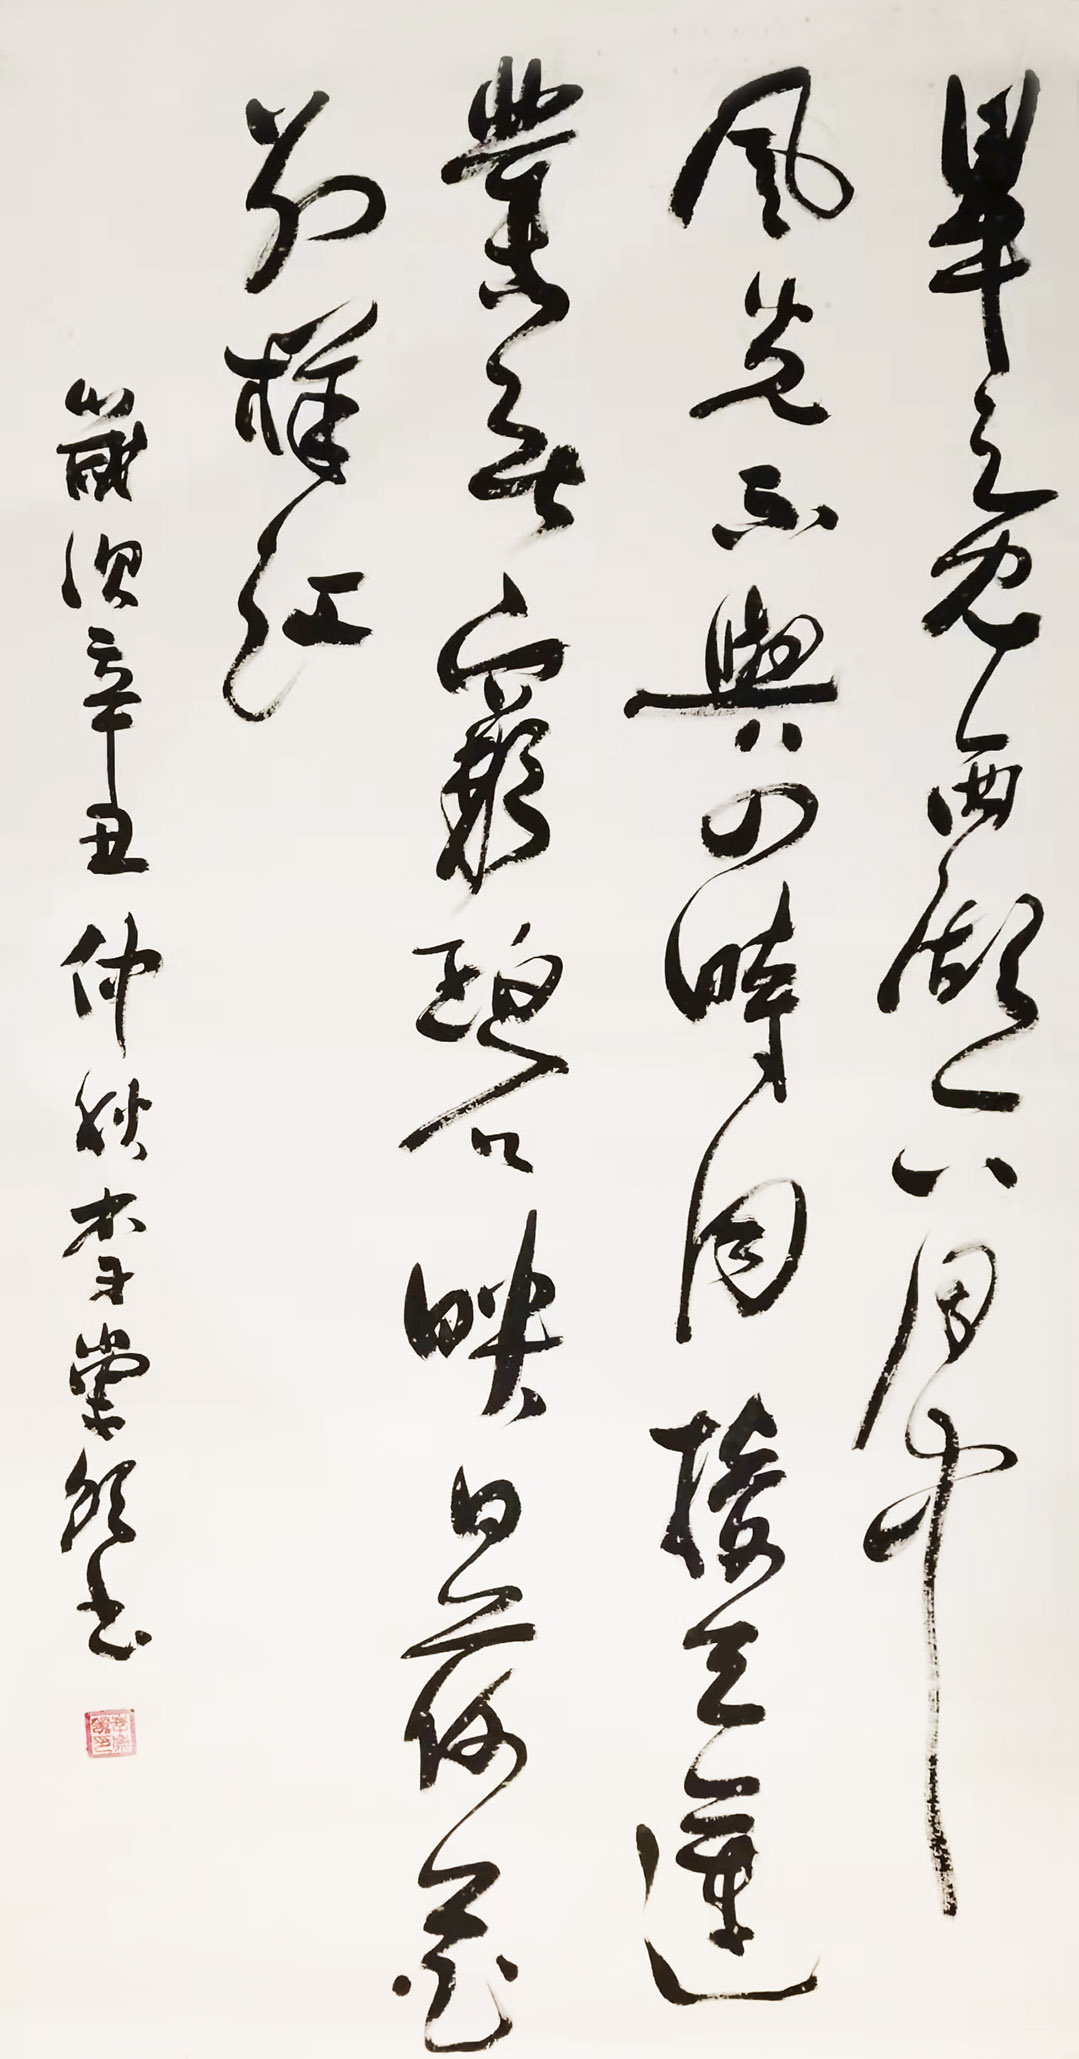 畢竟西湖六月中
風光不與四時同接天蓮
葉無窮碧映日荷花
別樣紅
歲次辛丑仲秋李書